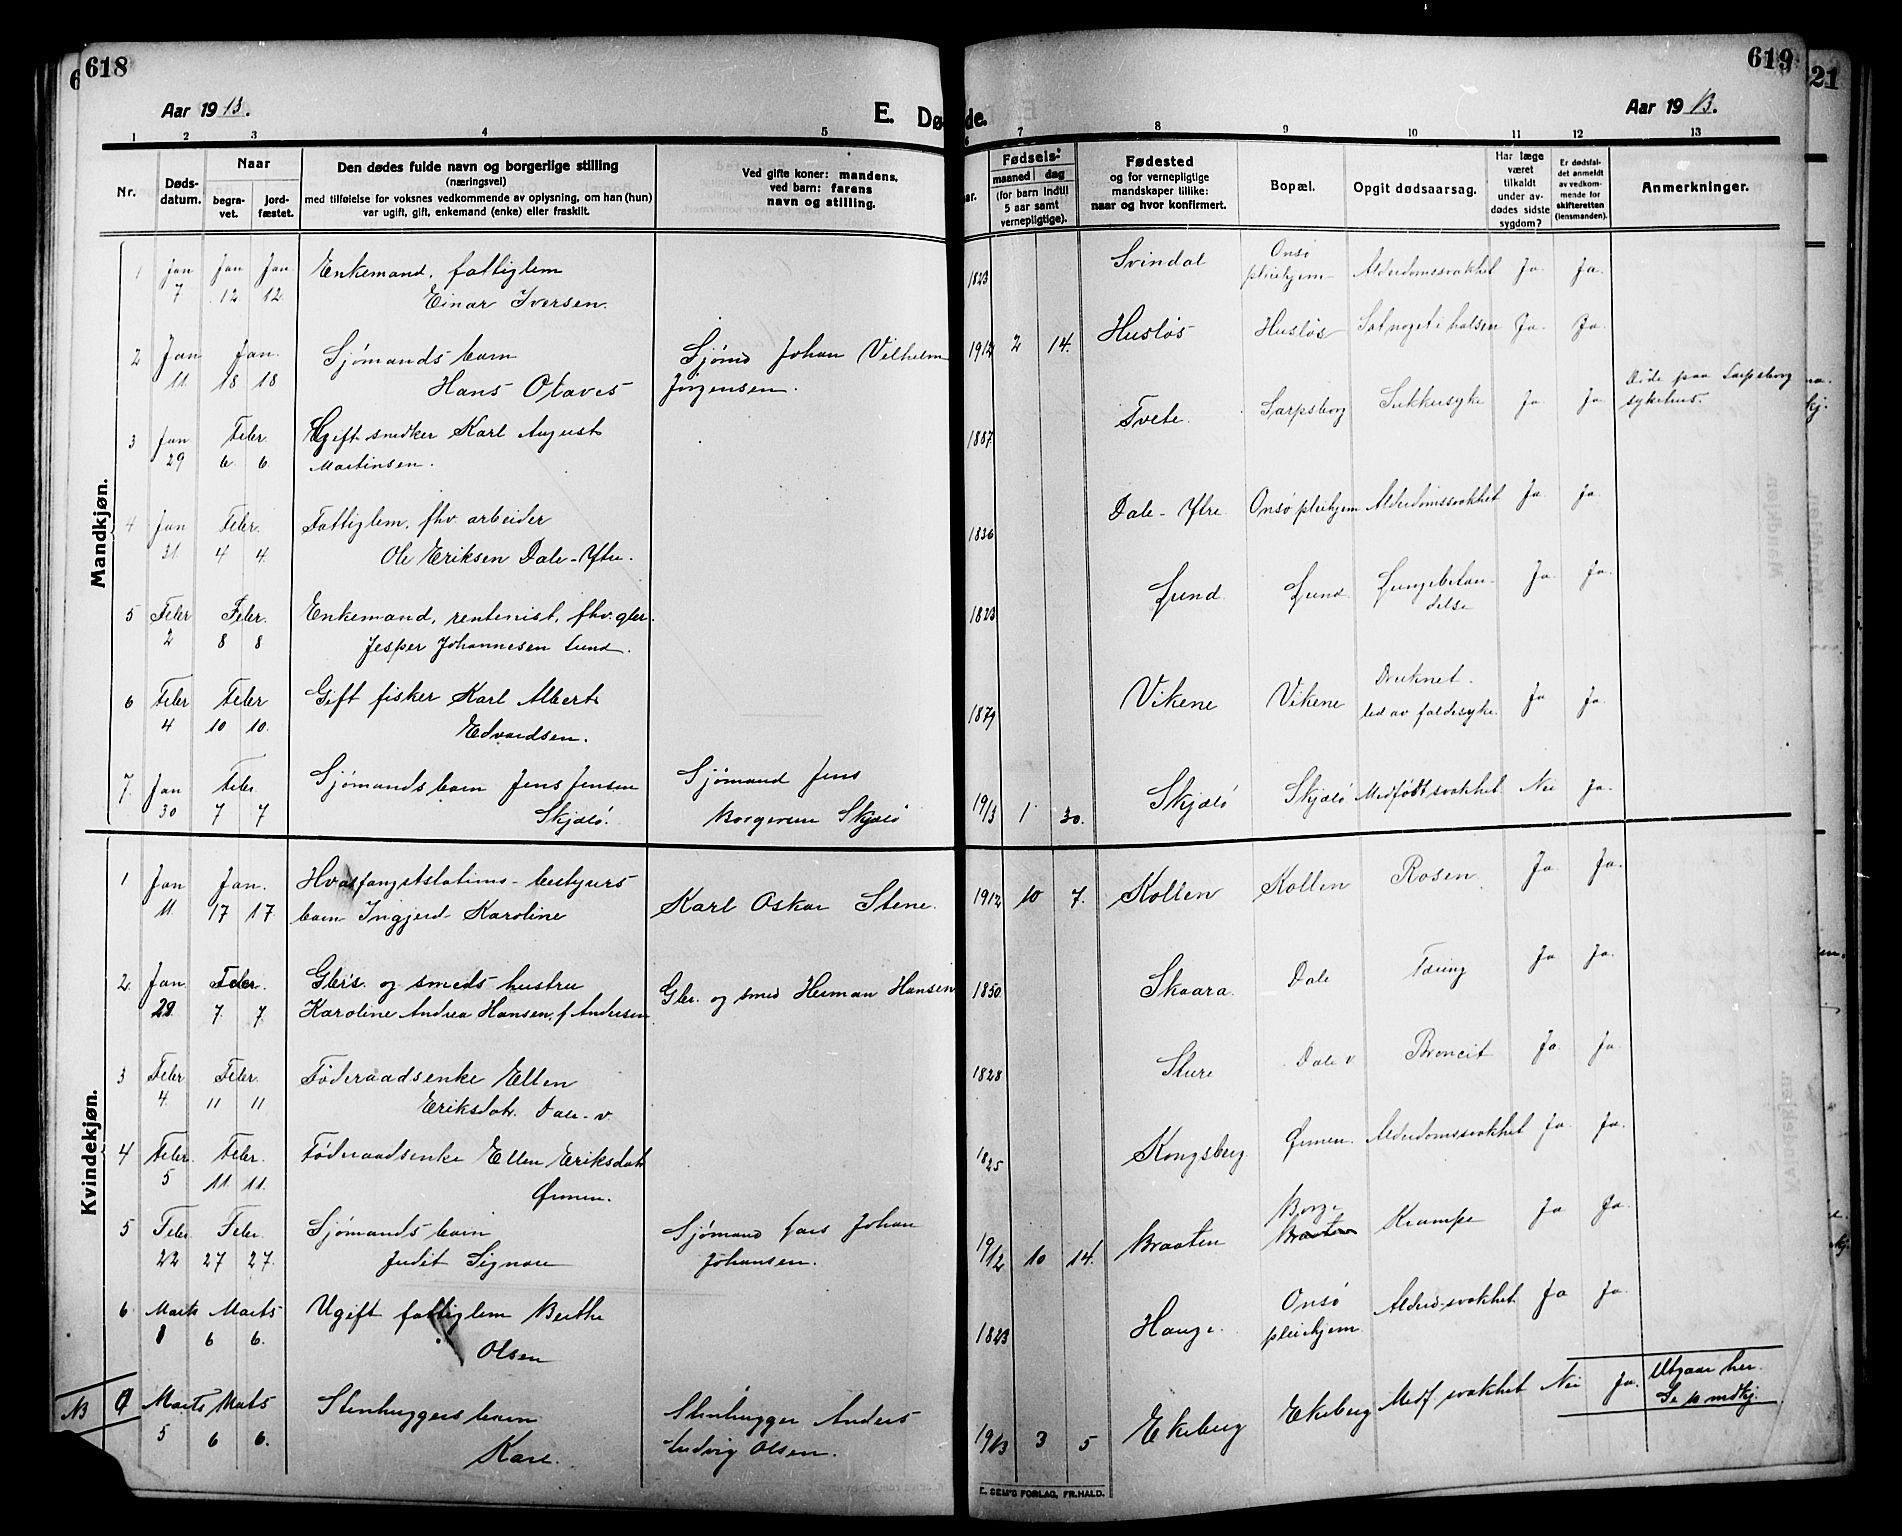 618
Aar 1913.
E. Dø
1 2 3 4 5
Nr.
Døds-
datum.
Naar
begra-
vet.
jord-
fæstet.
Den dødes fulde navn og borgerlige stilling
(næringsvei)
med tilføielse for voksnes vedkommende av oplysning, om han (hun)
var ugift, gift, enkemand (enke) eller fraskilt.
Ved gifte koner: mandens,
ved barn: farens
navn og stilling.
Mandkjøn.
1 Jan Jan Jan Enkemand, fattiglem
7 12 12 Einar Iversen.
2 Jan Jan. Sjømands barn Sjømd Johan Vilhelm
11 18 18 Hans Otavis Jørgensen.
3 Jan Febr. Ugift snedker Karl August
29 6. 6. Martinsen.
4 Jan Febr. Fattiglem, fhv. arbeider
31. 4 4. Ole Eriksen Dale-Ytre.
5 Febr Febr. Enkemand, rentenist, fhv. gbr.
2 8 8 Jesper Johannesen Lund.
6 Febr Febr Gift fisker Karl Albert
4 10 10. Edvardsen.
7. Jan Febr. Sjømands barn Jens Jensen Sjømand Jens
30 7 7 Skjælø. Borgersen Skjælø
Kvindekjøn.
1 Jan Jan. Hvalfangststations-bestyrers
11. 17 17. barn Ingjerd Karoline Karl Oskar Stene.
2. Jan Febr. Gbr's. og smeds hustru Gbr. og smed Herman Hansen
29. 7. 7. Karoline Andrea Hansen, f. Andersen
3 Febr Febr. Føderaadsenke Ellen
4. 11 11 Eriksdatr. Dale-v.
4 Febr. Febr. Føderaadsenke Ellen Eriksdatr
5 11 11. Ørmen.
5 Febr. Febr. Sjømands barn Sjømand Lars Johan
22 27 27. Judit Signore Johansen.
6 Marts Marts Ugift fattiglem Berthe
1 6 6. Olsen
NB Marts Marts Stenhuggers barn Stenhugger Anders
5 6 6. Kare. Ludvig Olsen.
619
21
Aar 1913.
de.
7 8 9 10 11 12 13
ar.
Fødsels-
maaned dag
(for barn indtil
5 aar samt
vernepligtige).
Fødested
og for vernepligtige
mandskaper tillike:
naar og hvor konfirmert.
Bopæl.
Opgit dødsaarsag.
Har læge
været
tilkaldt
under av-
dødes sidste
sygdom?
Er dødsfal-
det anmeldt
av vedkom-
mende for
skifteretten
(lensmanden).
Anmerkninger.
1823 Svindal Onsø
pleiehjem Alderdomssvakhet Ja. Ja.
1912 2 14. Husløs Husløs Sat noget i halsen Ja. Ja.
1887 Tvete. Sarpsborg Sukkersyke Ja Ja Døde paa Sarpsborg
sykehus.
1836 Dale-Ytre Onsø pleiehjem Alderdomssvakhet Ja Ja.
1823 Lund Lund Lungebetæn-
delse Ja. Ja.
1879 Vikene Vikene Druknet.
led av faldesyke. Ja Ja.
1913 1 30. Skjælø Skjælø Medfødt svakhet. Nei Ja.
1912 10 7. Kollen Kollen Rosen Ja Ja.
1850. Skaara. Dale Tæring Ja Ja.
1828 Sture Dale v Broncit Ja. Ja.
1825 Kongsberg Ørmen. Alderdomssvakhet Ja. Ja.
1912 10 14. Braaten Borge
Braaten Krampe Ja Ja.
1823 Hauge. Onsø
pleiehjem. Alderd.svakhet Ja Ja.
1913 3 5 Ekeberg Ekeberg Medf. svakhet Nei Ja. Utgaar her.
Se mdkj.
E. SEM'S FORLAG, FR.HALD.